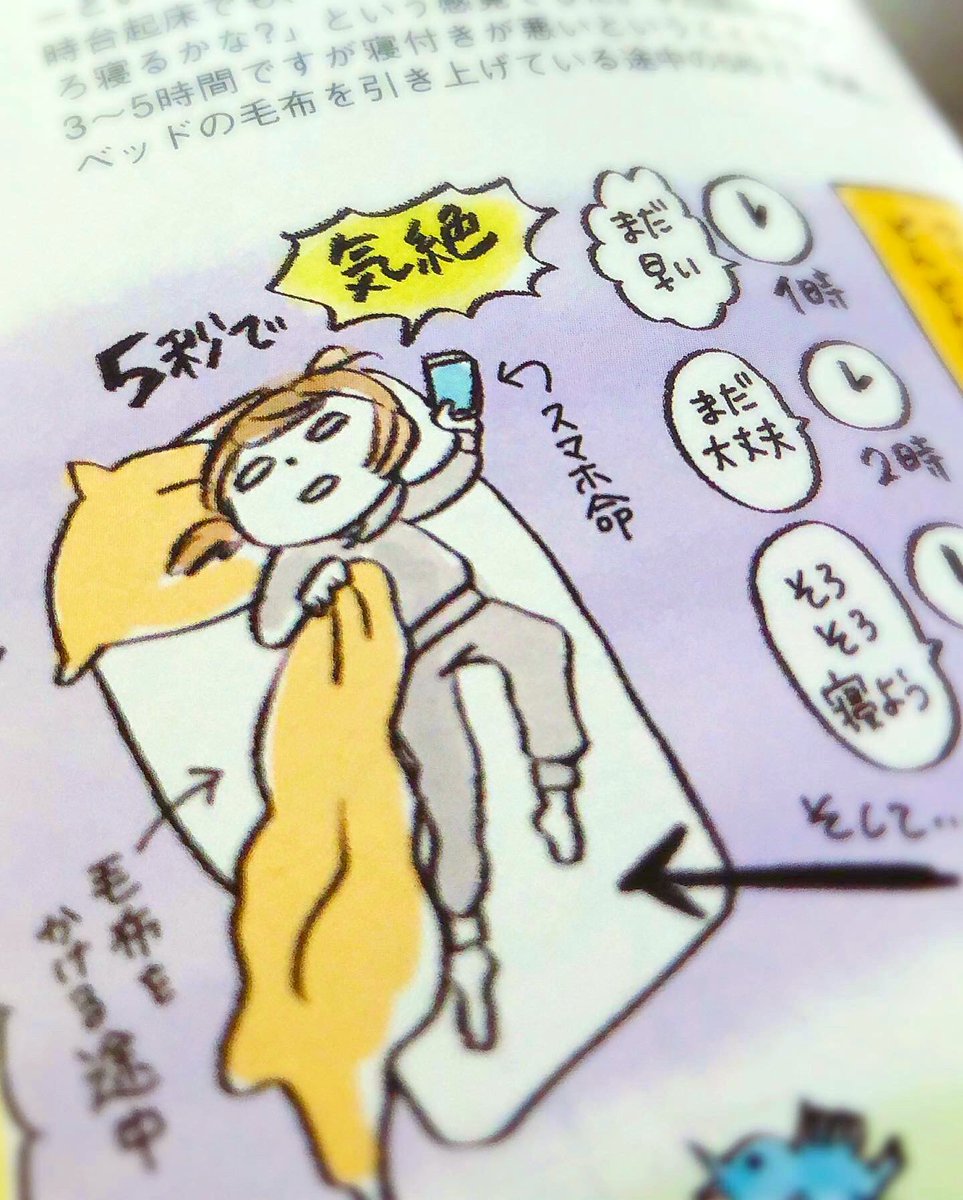 時台起床でも、
ろ寝るかな?」という感覚
3〜5時間ですが寝付きが悪いという
ベッドの毛布を引き上げている途中の
気絶
5秒で
まだ
早い
1時
スマホ命
まだ
大丈夫
2時
そろ
そろ
寝よう
そして‥
毛布を
かける途中